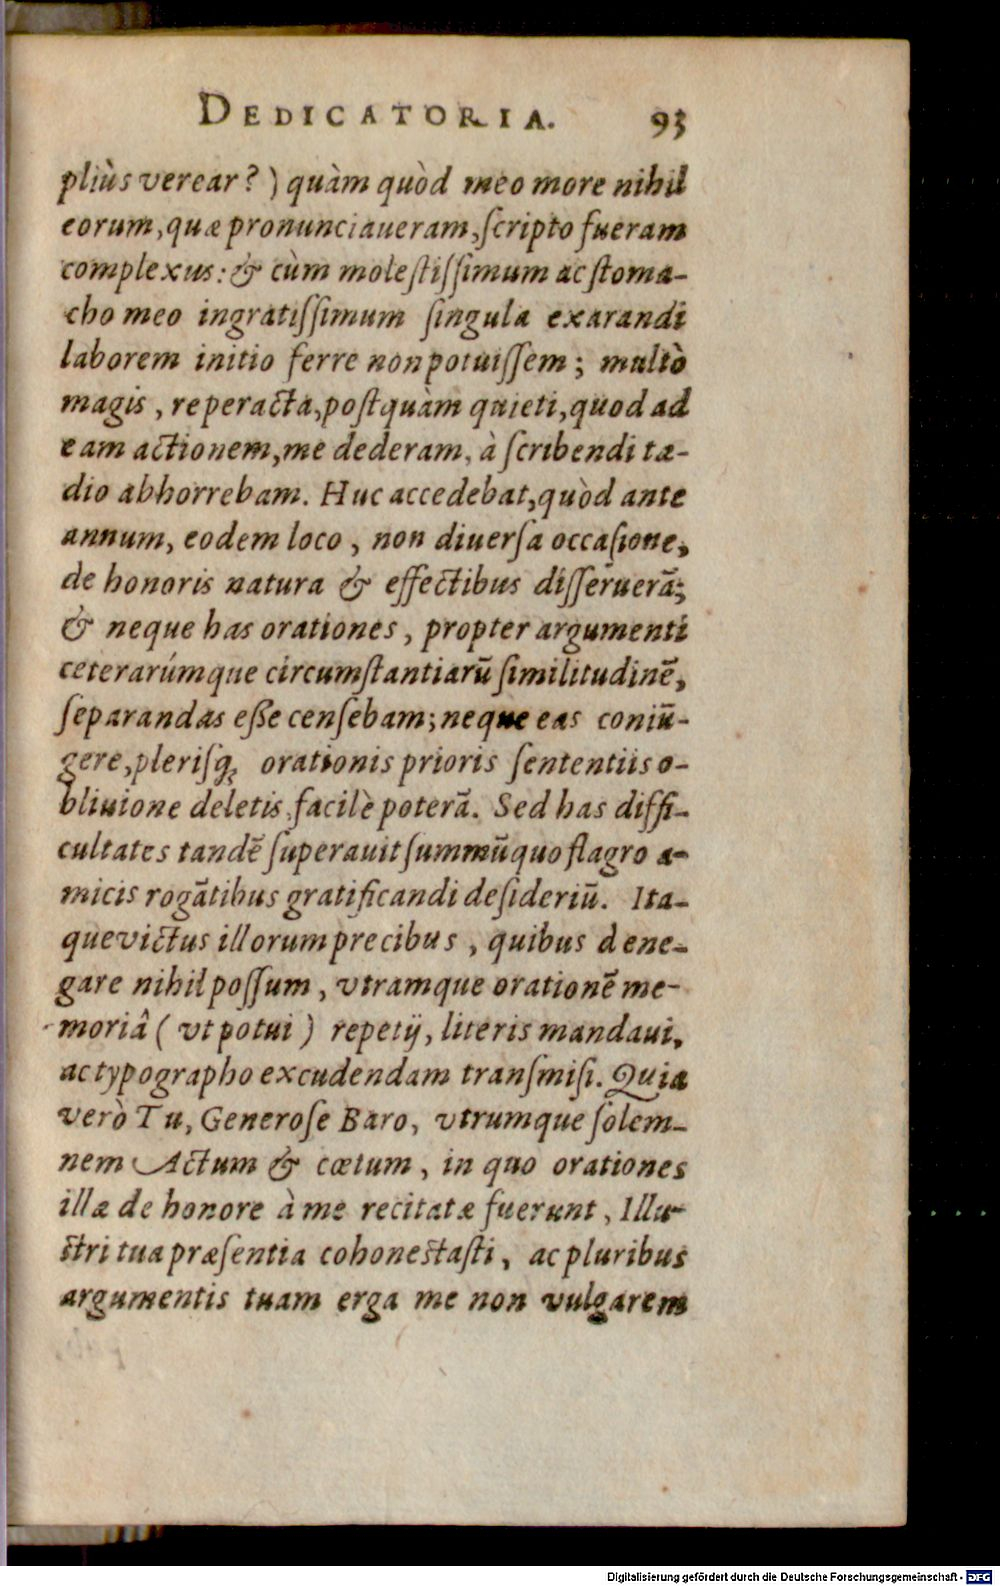 DEDICATORIA. 93
pliùs verear? ) quàm quòd meo more nihil
eorum, quæ pronunciaueram, ſcripto fueram
complexus: & cùm moleſtiſſimum ac ſtoma-
cho meo ingratiſſimum ſingula exarandi
laborem initio ferre non potuiſſem; multò
magis, re peracta, poſtquàm quieti, quod ad
eam actionem, me dederam, à ſcribendi tæ-
dio abhorrebam. Huc accedebat, quòd ante
annum, eodem loco, non diuerſa occaſione,
de honoris natura & effectibus diſſeruerã;
& neque has orationes, propter argumenti
ceterarúmque circumſtantiarũ ſimilitudinẽ,
ſeparandas eße cenſebam; neque eas coniũ-
gere, pleriſq; orationis prioris ſententiis o-
bliuione deletis, facilè poterã. Sed has diffi-
cultates tandẽ ſuperauit ſummũ quo flagro a-
micis rogãtibus gratificandi deſideriũ. Ita-
que victus illorum precibus, quibus dene-
gare nihil poſſum, vtramque orationẽ me-
moriâ ( vt potui ) repetij, literis mandaui,
ac typographo excudendam tranſmiſi. Quia
verò Tu, Generoſe Baro, vtrumque ſolem-
nem Actum & cœtum, in quo orationes
illæ de honore à me recitatæ fuerunt, Illu-
ſtri tua præſentia cohoneſtaſti, ac pluribus
argumentis tuam erga me non vulgarem
Digitalisierung gefördert durch die Deutsche Forschungsgemeinschaft - DFG